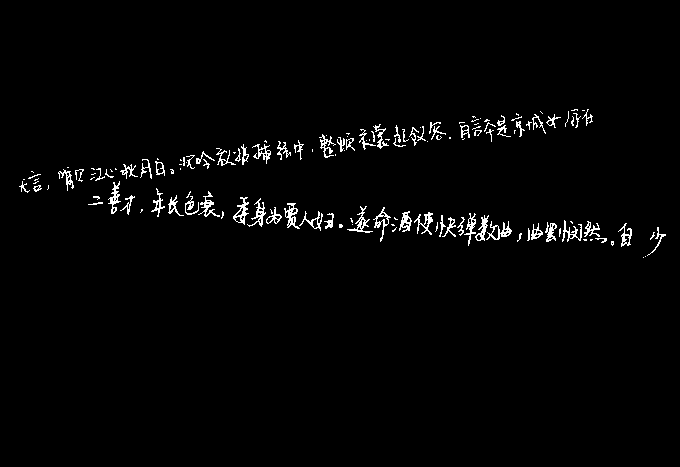 无言，唯见江心秋月白。沉吟放拨插弦中，整顿衣裳起敛容。自言本是京城女，居在
二善才，年长色衰，委身为贾人妇。遂命酒使快弹数曲，曲罢悯然。自 少